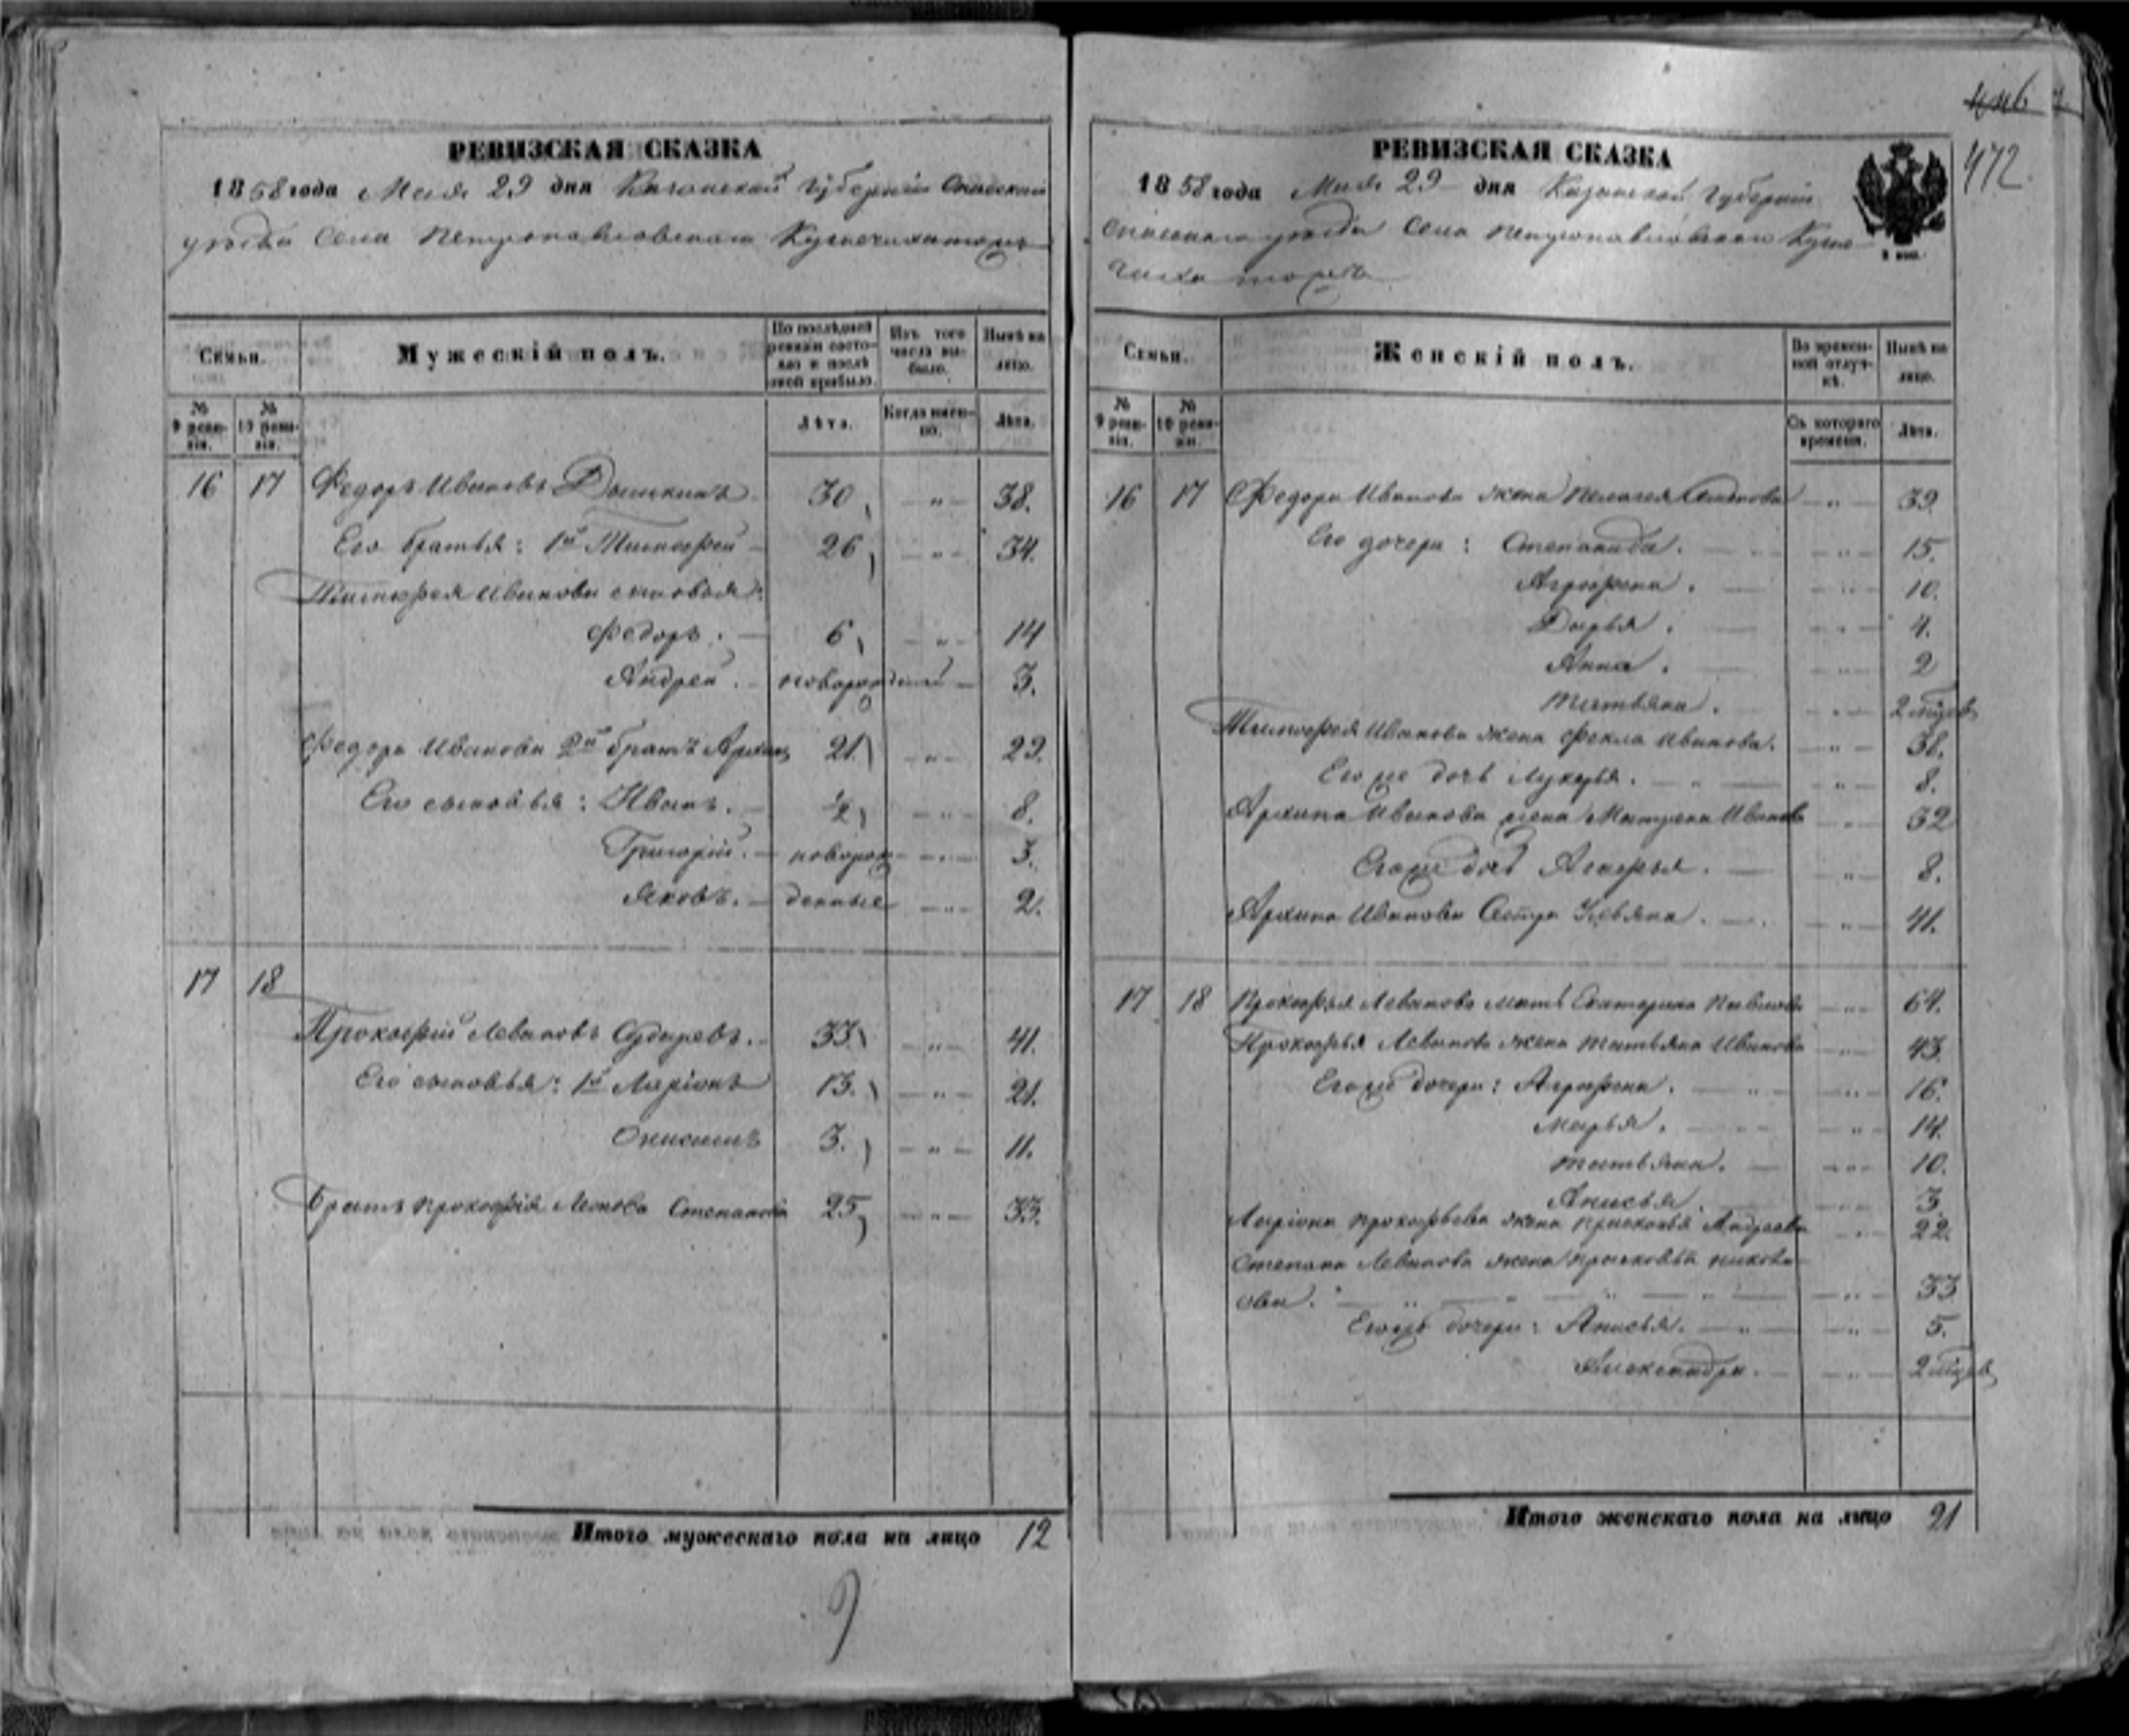 РЕВИЗСКАЯ СКАЗКА
1858 года Мая 29 дня Казанской Губернии Спасскаго
уезда Села Петропавловскаго Кузнечиха тожъ
Семьи.
Мужескій полъ.
По последней ревизіи состояло и после оной прибыло.
Изъ того числа выбыло.
Ныне на лицо.
№ 9 ревизіи.
№ 10 ревизіи.
Лета.
Когда именно.
Лета.
16 17 Федоръ Ивановъ 30 „ 38.
Его братья: 1й Тимофей 26 „ 34.
Тимофея Иванова сыновья:
Федоръ. 6 „ 14
Андрей. новорожденный 3.
Федора Иванова 2й братъ Архипъ 21 „ 29.
Его сыновья: Иванъ. ½ „ 8.
Григорій. новорож „ 3.
Яковъ. денные „ 2.
17 18
Прокофій Леванов 33 „ 41.
Его сыновья: 1й Ларіонъ 13. „ 21.
Онисимъ 3. „ 11.
Братъ Прокофія Степанъ 25 „ 33.
Итого мужескаго пола на лицо 12
9
472
РЕВИЗСКАЯ СКАЗКА
1858 года Мая 29 дня Казанской Губерніи
Спасскаго уезда Села Петропавловскаго Кузне
чиха тожъ
Семьи.
Женскій полъ.
Во временной отлучке.
Ныне на лицо.
№ 9 ревизіи.
№ 10 ревизіи.
Съ котораго времени.
Лета.
16 17 Федора Иванова жена Пелагея Семенова „ 39
Его дочери: Степанида. „ 15.
Агрофена. „ 10.
Дарья. „ 4.
Анна. „ 2
Татьяна. „ 2 месяцев
Тимофея Иванова жена Фекла Иванова. „ 38.
Его же дочь Лукерья. „ 8.
Архипа Иванова жена Матрена Иванова „ 32
Его же дочь „ 8.
Архипа Иванова Сестра Ульяна. „ 41.
17 18 Прокофья Леванова мать Екатерина Павлова „ 64.
Прокофья Леванова жена Татьяна Иванова „ 43.
Его же дочери: Агрофена. „ 16.
Марья. „ 14.
Татьяна. „ 10.
Анисья. „ 3.
Ларіона Прокофьева жена Прасковья Андреева „ 22.
Степана Леванова жена Прасковья
„ 33
Его же дочери: Анисья. „ 5.
Александра. „ 2 месяцев
Итого женскаго пола на лицо 21